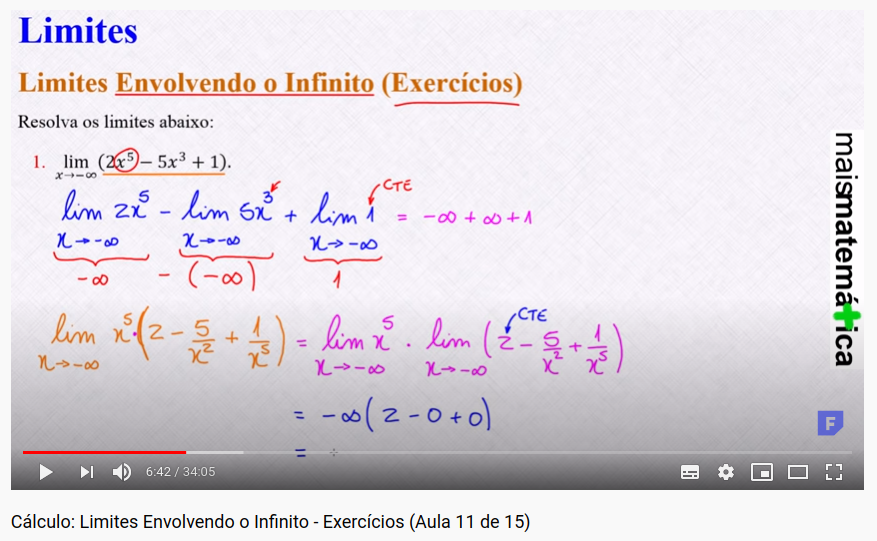 Limites
Limites Envolvendo o Infinito (Exercícios)
Resolva os limites abaixo:
1. lim (2x⁵ – 5x³ + 1).
x→−∞
CTE
lim 2x⁵ - lim 5x³ + lim 1 = -∞ + ∞ + 1
x→-∞ x→-∞ x→-∞
-∞ - (-∞) 1
CTE
lim x⁵·(2 - 5/x² + 1/x⁵) = lim x⁵ · lim (2 - 5/x² + 1/x⁵)
x→-∞ x→-∞ x→-∞
= -∞(2 - 0 + 0)
=
maismatemática
F
6:42 / 34:05
Cálculo: Limites Envolvendo o Infinito - Exercícios (Aula 11 de 15)